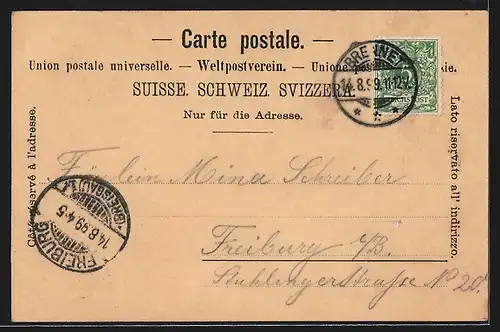 — Carte postale. —
Union postale universelle. — Weltpostverein. — Unione
SUISSE. SCHWEIZ. SVIZZERA.
Nur für die Adresse.
Côté réservé à l'adresse.
Lato riservato all' indirizzo.
BRENNET
14.8.99.11-12V.
Fräulein Mina Schreiber
Freiburg i/B.
Stühlingerstraße No 20.
FREIBURG
(BREISGAU)
14.8.99.4-5